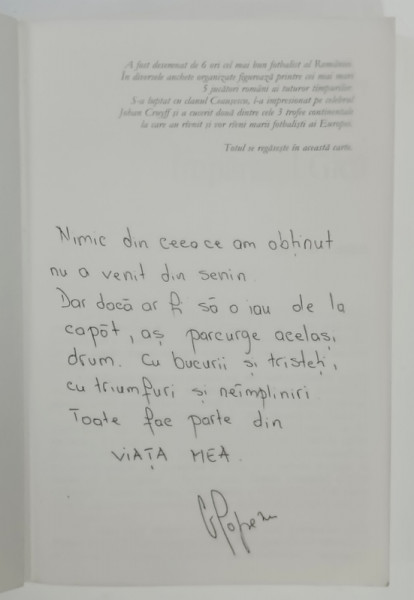 A fost desemnat de 6 ori cel mai bun fotbalist al României.
În diversele anchete organizate figurează printre cei mai mari
5 jucători români ai tuturor timpurilor.
S-a luptat cu clanul Ceaușescu, l-a impresionat pe celebrul
Johan Cruyff și a cucerit două dintre cele 3 trofee continentale
la care au râvnit și vor râvni marii fotbaliști ai Europei.
Totul se regăsește în această carte.
Nimic din ceea ce am obținut
nu a venit din senin.
Dar dacă ar fi să o iau de la
capăt, aș parcurge același
drum. Cu bucurii și tristeți,
cu triumfuri și neîmpliniri.
Toate fac parte din
VIAȚA MEA.
GPopescu